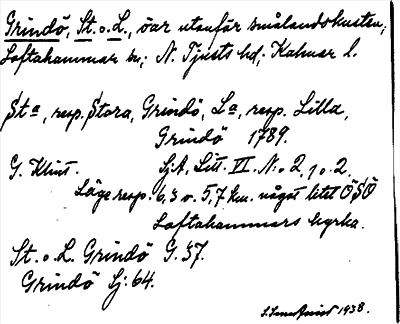 Grindö, St. o. L., öar utanför smålandskusten,
Loftahammar sn; N. Tjusts hd; Kalmar l.
Sta, resp. Stora, Grindö, La, resp. Lilla,
Grindö 1789.
G. Klint. Sj.A, Litt. VI. N:o 2, 1 o. 2.
Läge resp. 6,3 o. 5,7 km. något litet ÖSÖ
Loftahammars kyrka.
St. o. L. Grindö G. 37.
Grindö Sj: 64.
1938.